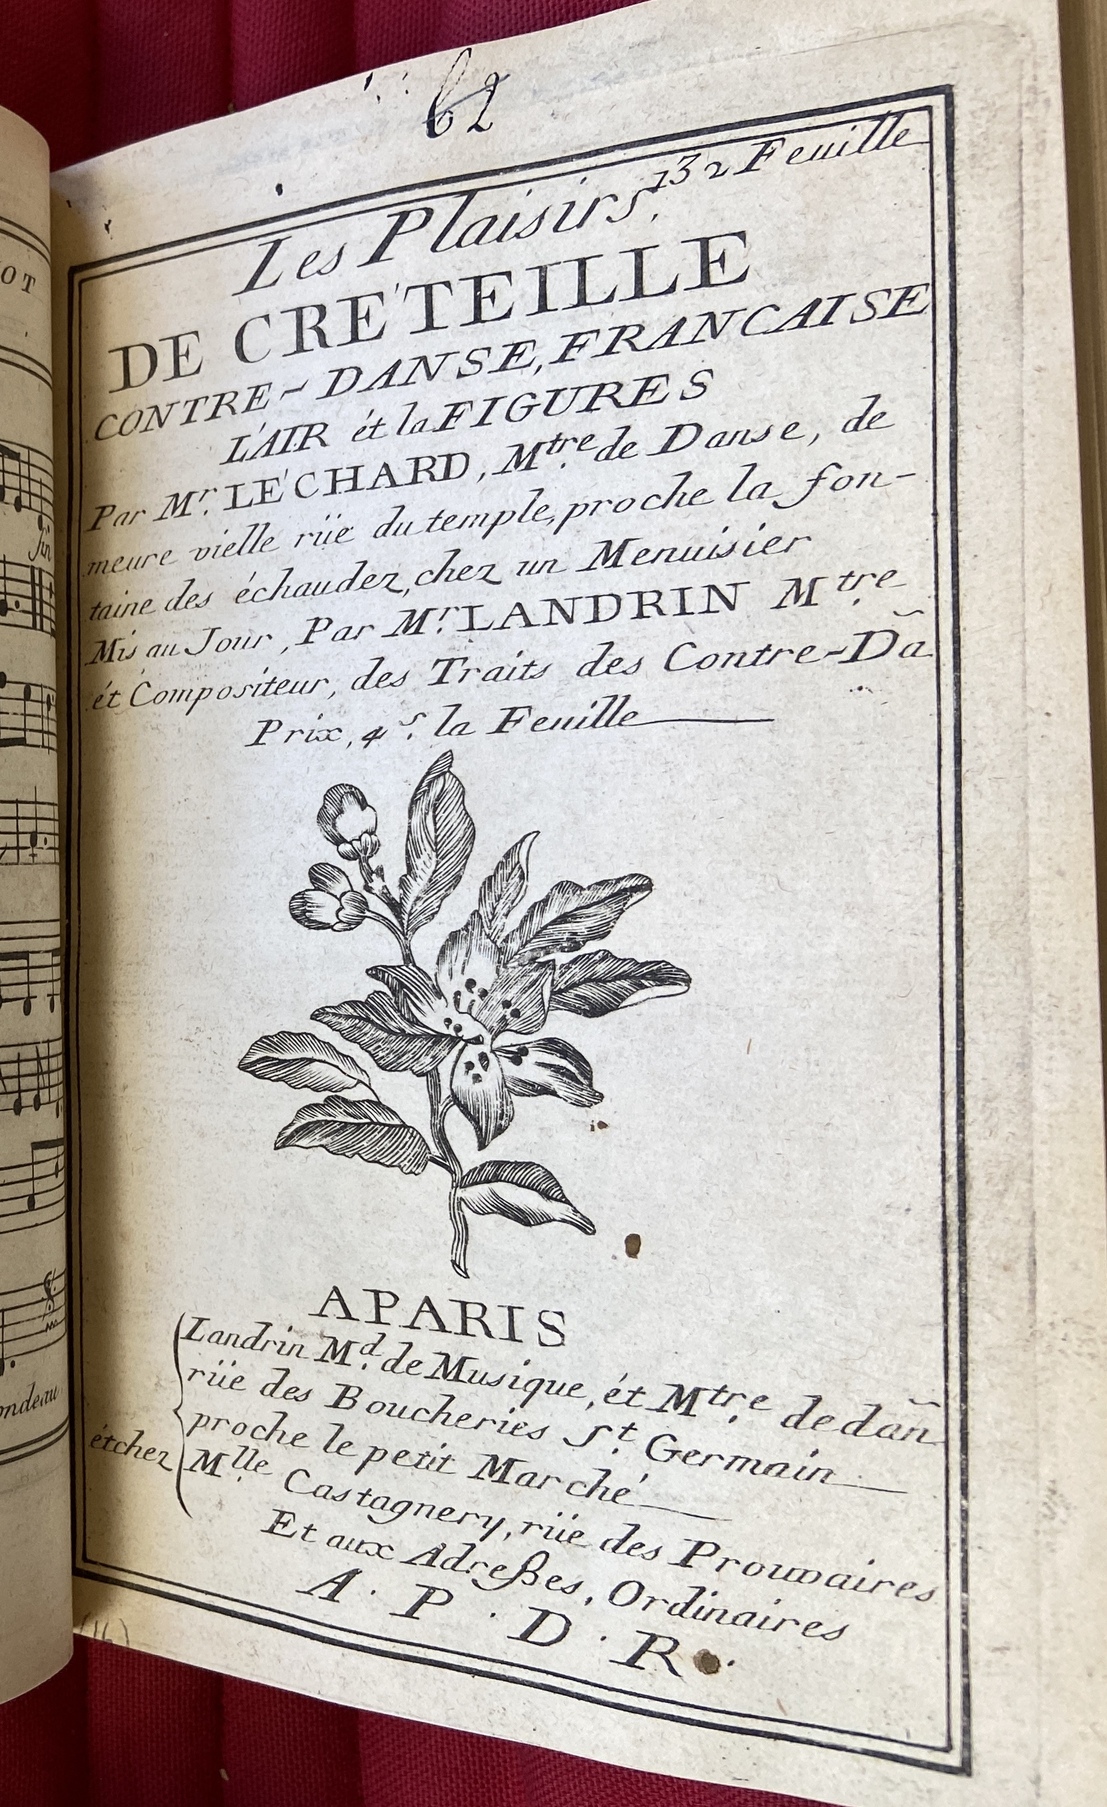 62
132 Feuille
Les Plaisirs,
DE CRE'TEILLE
CONTRE-DANSE, FRANCAISE
L'AIR ét la FIGURES
Par Mr. LE'CHARD, Mtre. de Danse, de
meure vielle rüe du temple, proche la fon-
taine des échaudez, chez un Menuisier
Mis au Jour, Par Mr. LANDRIN Mtre
ét Compositeur, des Traits des Contre-Dã
Prix, 4 s. la Feuille
APARIS
Landrin Md. de Musique, ét Mtre. de dañ
rüe des Boucheries St. Germain
proche le petit Marché
étchez Mlle Castagnery, rüe des Prouvaires
Et aux Adreßes, Ordinaires
A. P. D. R.
OT
fin
ondeau